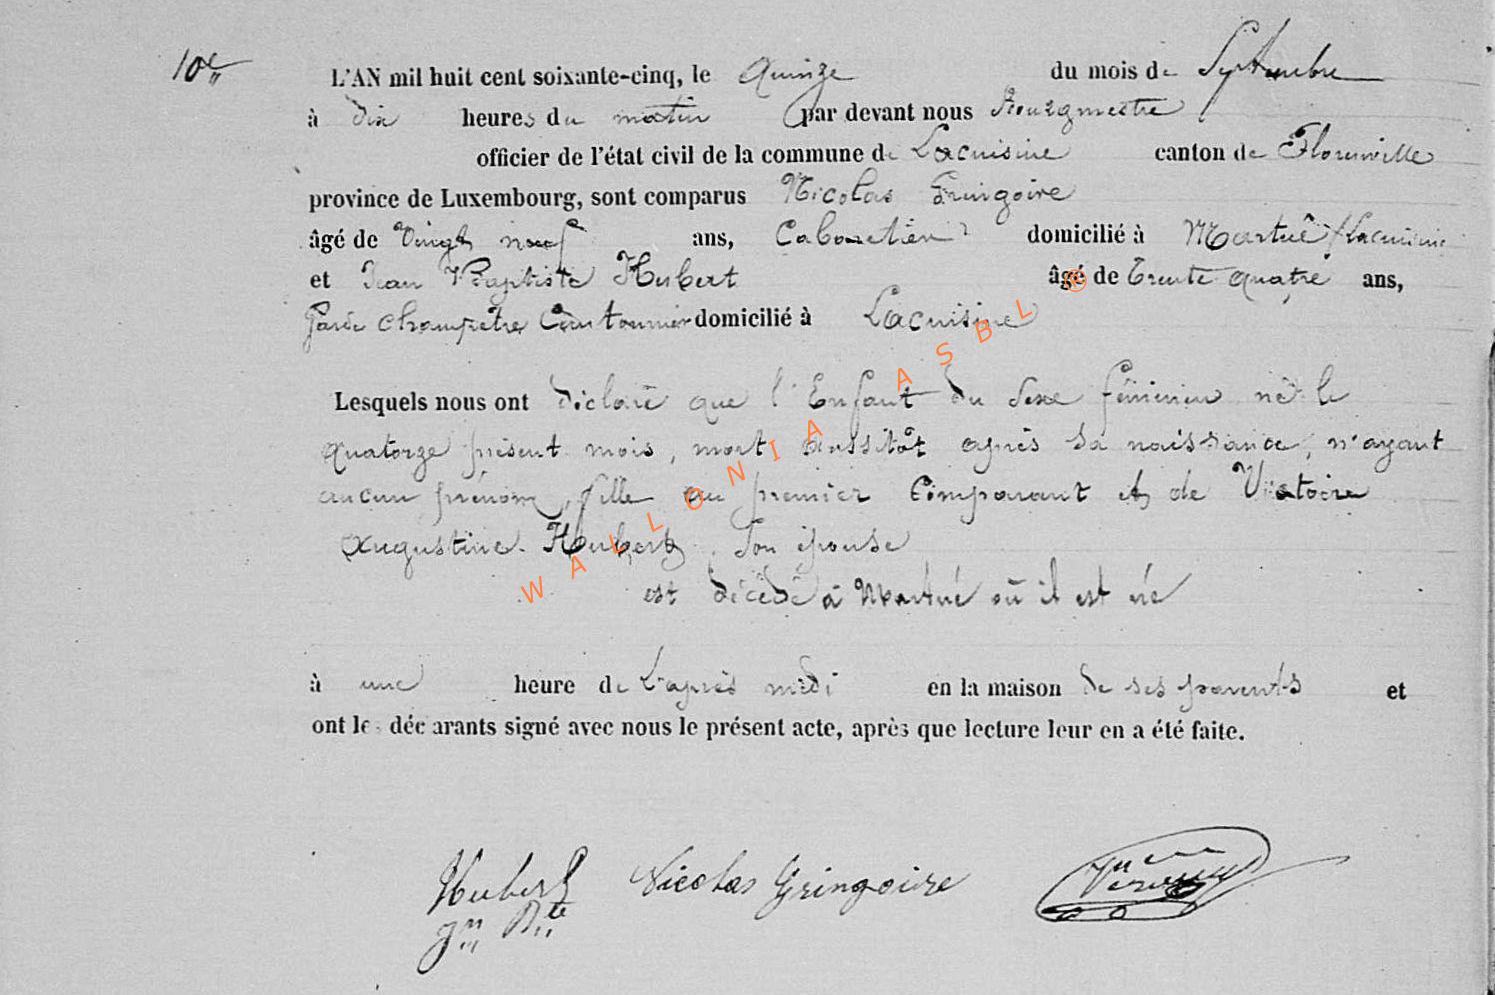 10e
L'AN mil huit cent soixante-cinq, le Quinze du mois de Septembre
à dix heures du matin par devant nous Bourgmestre
officier de l'état civil de la commune de Lacuisine canton de Florenville
province de Luxembourg, sont comparus Nicolas Gringoire
âgé de Vingt neuf ans, Cabaretier domicilié à Martué / Lacuisine
et Jean Baptiste Hubert âgé de trente quatre ans,
garde champêtre Cantonnier domicilié à Lacuisine
Lesquels nous ont déclaré que l'Enfant du sexe féminin né le
quatorze présent mois, mort aussitôt après sa naissance, n'ayant
aucun prénom, fille du premier Comparant et de Victoire
Augustine Hubert, son épouse
est décédé à Martué où il est né
à une heure de L'après midi en la maison de ses parents et
ont les déc arants signé avec nous le présent acte, après que lecture leur en a été faite.
Hubert Nicolas Gringoire
Jn Bte
WALLONIA ASBL ®